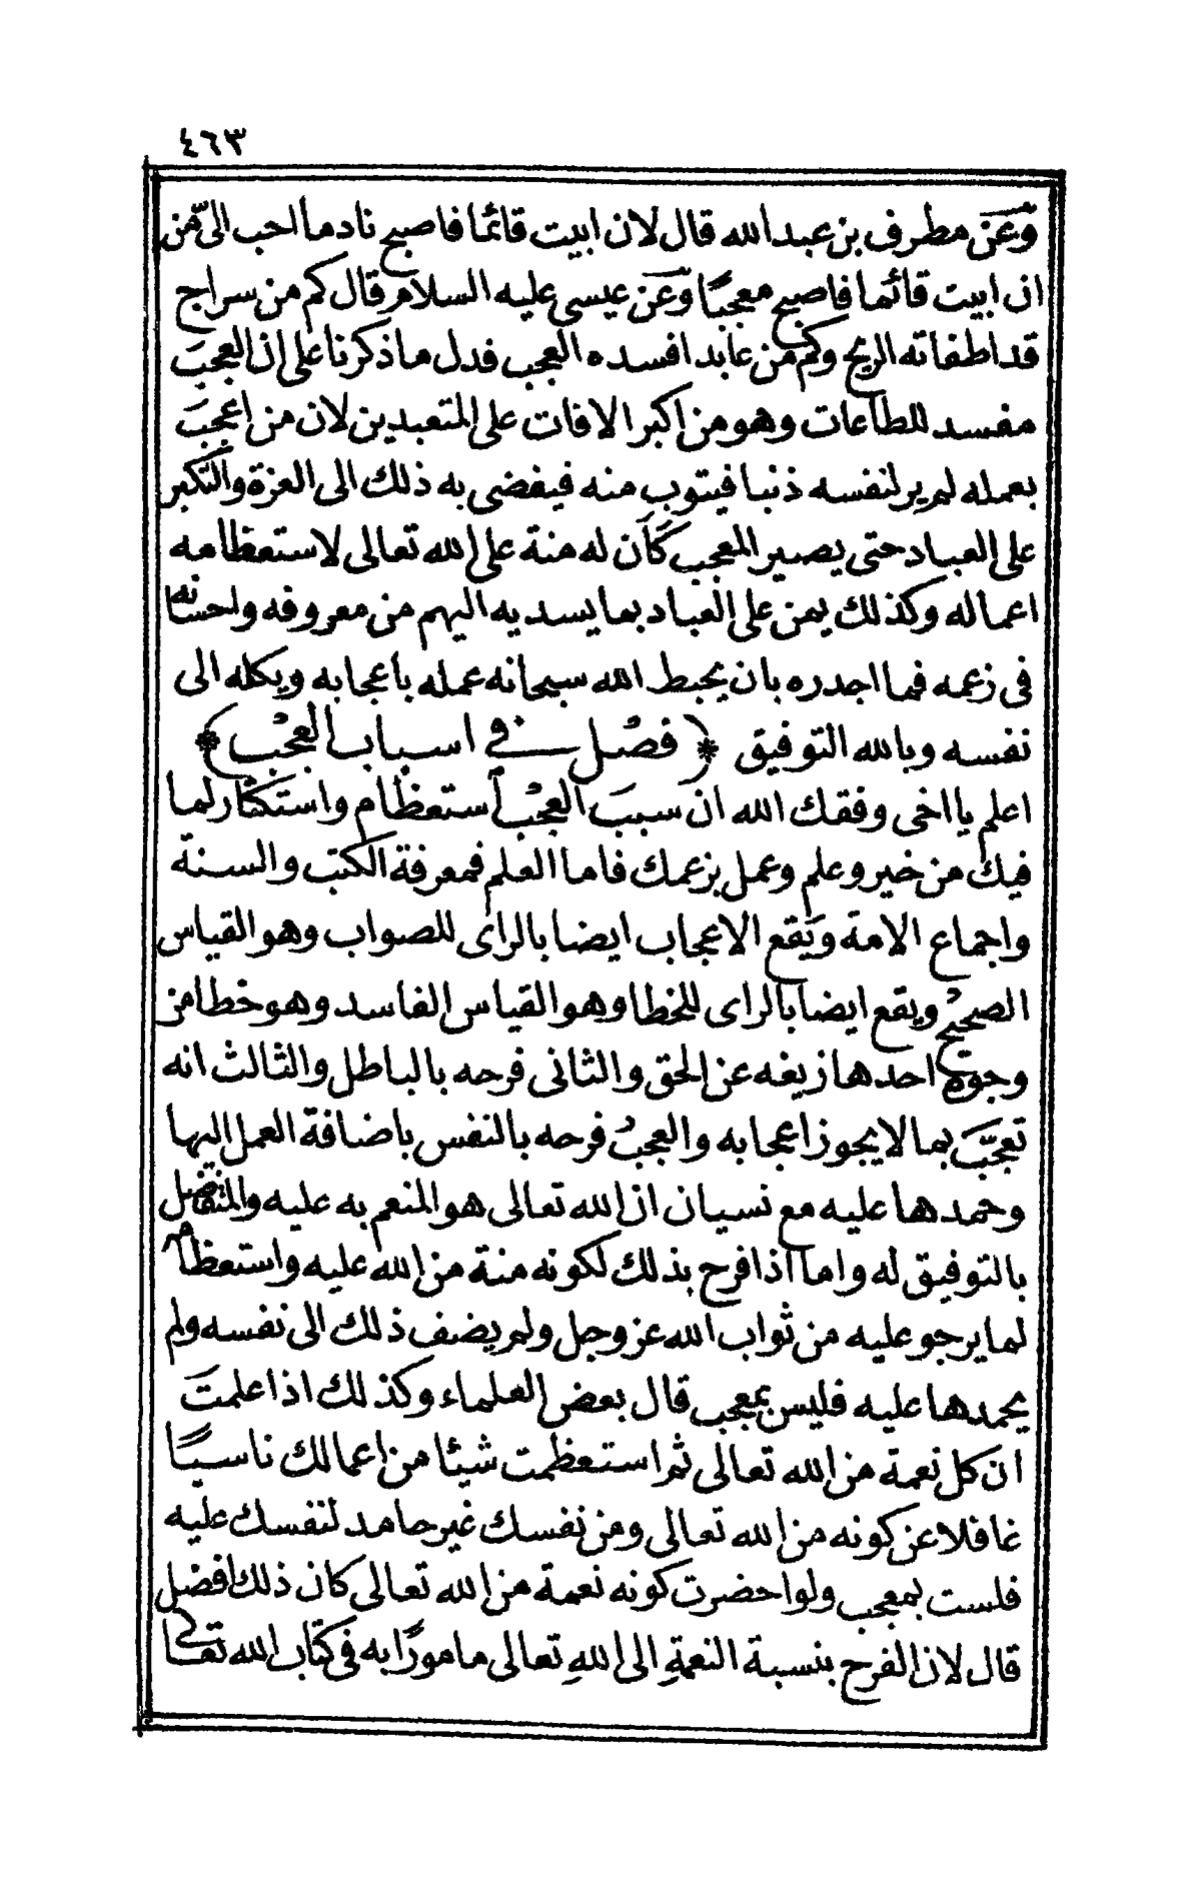 ٤٦٣
وَعَن مطرف بن عبد الله قال لان ابيت قائما فاصبح نادما احب الىّ من
ان ابيت قائما فاصبح معجبًا وعَن عيسى عليه السلام قال كم من سراج
قد اطفاته الريح وكم من عابد افسده العجب فدل ما ذكرنا على ان العجبَ
مفسد للطاعات وهو من اكبر الافات على المتعبدين لان من اعجبَ
بعمله لم ير لنفسه ذنبا فيتوب منه فيفضى به ذلك الى العزة والتكبر
على العباد حتى يصير المعجب كَأَن له منة على الله تعالى لاستعظامه
اعماله وكذلك يمن على العباد بما يسديه اليهم من معروفه واحسانه
فى زعمه فما اجدره بان يحبط الله سبحانه عمله باعجابه ويكله الى
نفسه وبالله التوفيق ﴿ * فصْل فى اسباب العجْب * ﴾
اعلم يا اخى وفقك الله ان سببَ العجْب استعظام واستكثار لما
فيك من خير وعلم وعمل بزعمك فاما العلم فمعرفة الكتب والسنة
واجماع الامة ويَقع الاعجاب ايضا بالراى للصواب وهو القياس
الصحيحْ ويقع ايضا بالراى للخطا وهو القياس الفاسد وهو خطا من
وجوه احدها زيغه عن الحق والثانى فرحه بالباطل والثالث انه
تعجّبَ بما لا يجوز اعجابه والعجبُ فرحه بالنفس باضافة العمل اليها
وحمدها عليه مع نسيان ان الله تعالى هو المنعم به عليه والمتفضل
بالتوفيق له واما اذا فرح بذلك لكونه منة من الله عليه واستعظامه
لما يرجو عليه من ثواب الله عز وجل ولم يضف ذلك الى نفسه ولم
يحمدها عليه فليس بمعجب قال بعض العلماء وكذلك اذا علمتَ
ان كل نعمة من الله تعالى ثم استعظمت شيئا من اعمالك ناسيًا
غافلا عن كونه من الله تعالى ومن نفسك غير حامد لنفسك عليه
فلست بمعجب ولو احضرت كونه نعمة من الله تعالى كان ذلك افضل
قال لان الفرح بنسبة النعمةِ الى اللهِ تعالى مامورًا به فى كتاب الله تعالى